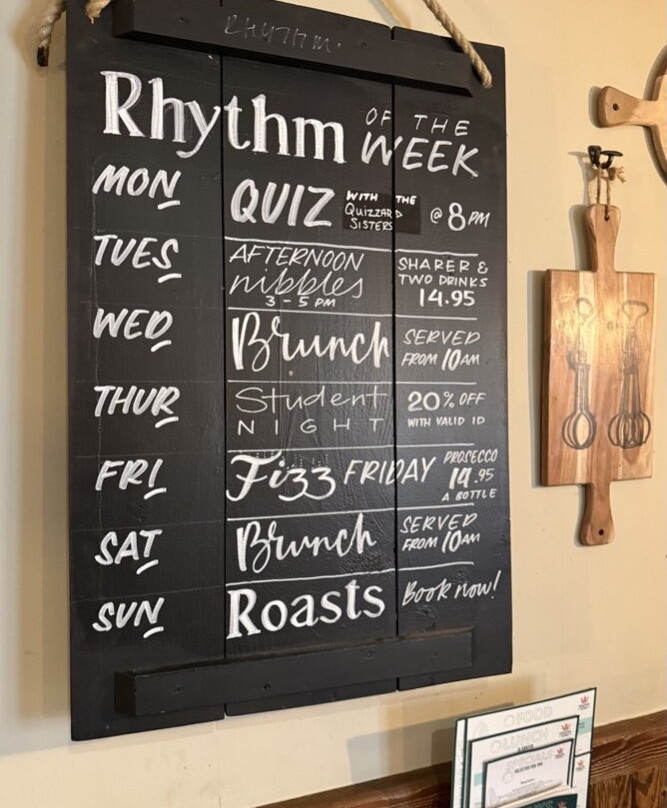 RHYTHM.
Rhythm OF THE
WEEK
MON QUIZ WITH THE Quizzard Sisters @ 8PM
TUES AFTERNOON nibbles 3-5 PM SHARER & TWO DRINKS 14.95
WED Brunch SERVED FROM 10AM
THUR Student NIGHT 20% OFF WITH VALID ID
FRI Fizz FRIDAY PROSECCO 19.95 A BOTTLE
SAT Brunch SERVED FROM 10AM
SUN Roasts Book now!
FOOD
LUNCH
SPECIALS